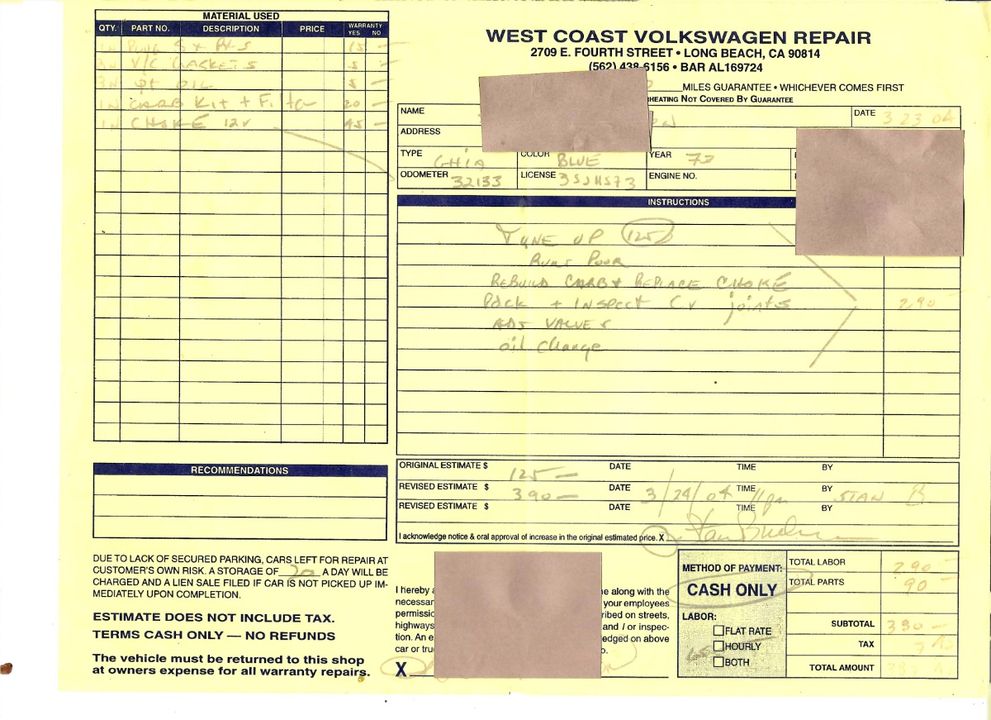 MATERIAL USED
QTY. PART NO. DESCRIPTION PRICE WARRANTY YES NO
15 —
V/C GASKETS 5 —
QT OIL 5 —
CARB KIT + 20 —
CHOKE 12V 45 —
WEST COAST VOLKSWAGEN REPAIR
2709 E. FOURTH STREET • LONG BEACH, CA 90814
(562) 438-6156 • BAR AL169724
MILES GUARANTEE • WHICHEVER COMES FIRST
HEATING NOT COVERED BY GUARANTEE
NAME
DATE 3 23 04
ADDRESS
TYPE GHIA COLOR BLUE YEAR 72
ODOMETER 32133 LICENSE ENGINE NO.
INSTRUCTIONS
TUNE UP 125
RUNS POOR
REBUILD CARB + REPLACE CHOKE
PACK + INSPECT CV joints 290
ADJ VALVES
oil change
RECOMMENDATIONS
ORIGINAL ESTIMATE $ 125 — DATE TIME BY
REVISED ESTIMATE $ 390 — DATE 3/24/04 TIME BY STAN B
REVISED ESTIMATE $ DATE TIME BY
I acknowledge notice & oral approval of increase in the original estimated price. X
DUE TO LACK OF SECURED PARKING, CARS LEFT FOR REPAIR AT
CUSTOMER'S OWN RISK. A STORAGE OF 20 A DAY WILL BE
CHARGED AND A LIEN SALE FILED IF CAR IS NOT PICKED UP IM-
MEDIATELY UPON COMPLETION.
ESTIMATE DOES NOT INCLUDE TAX.
TERMS CASH ONLY — NO REFUNDS
The vehicle must be returned to this shop
at owners expense for all warranty repairs.
I hereby e along with the
necessar your employees
permissio ribed on streets,
highways and / or inspec-
tion. An e edged on above
car or tru o.
X
METHOD OF PAYMENT:
CASH ONLY
LABOR:
FLAT RATE
HOURLY
BOTH
TOTAL LABOR 290 —
TOTAL PARTS 90 —
SUBTOTAL 380 —
TAX
TOTAL AMOUNT